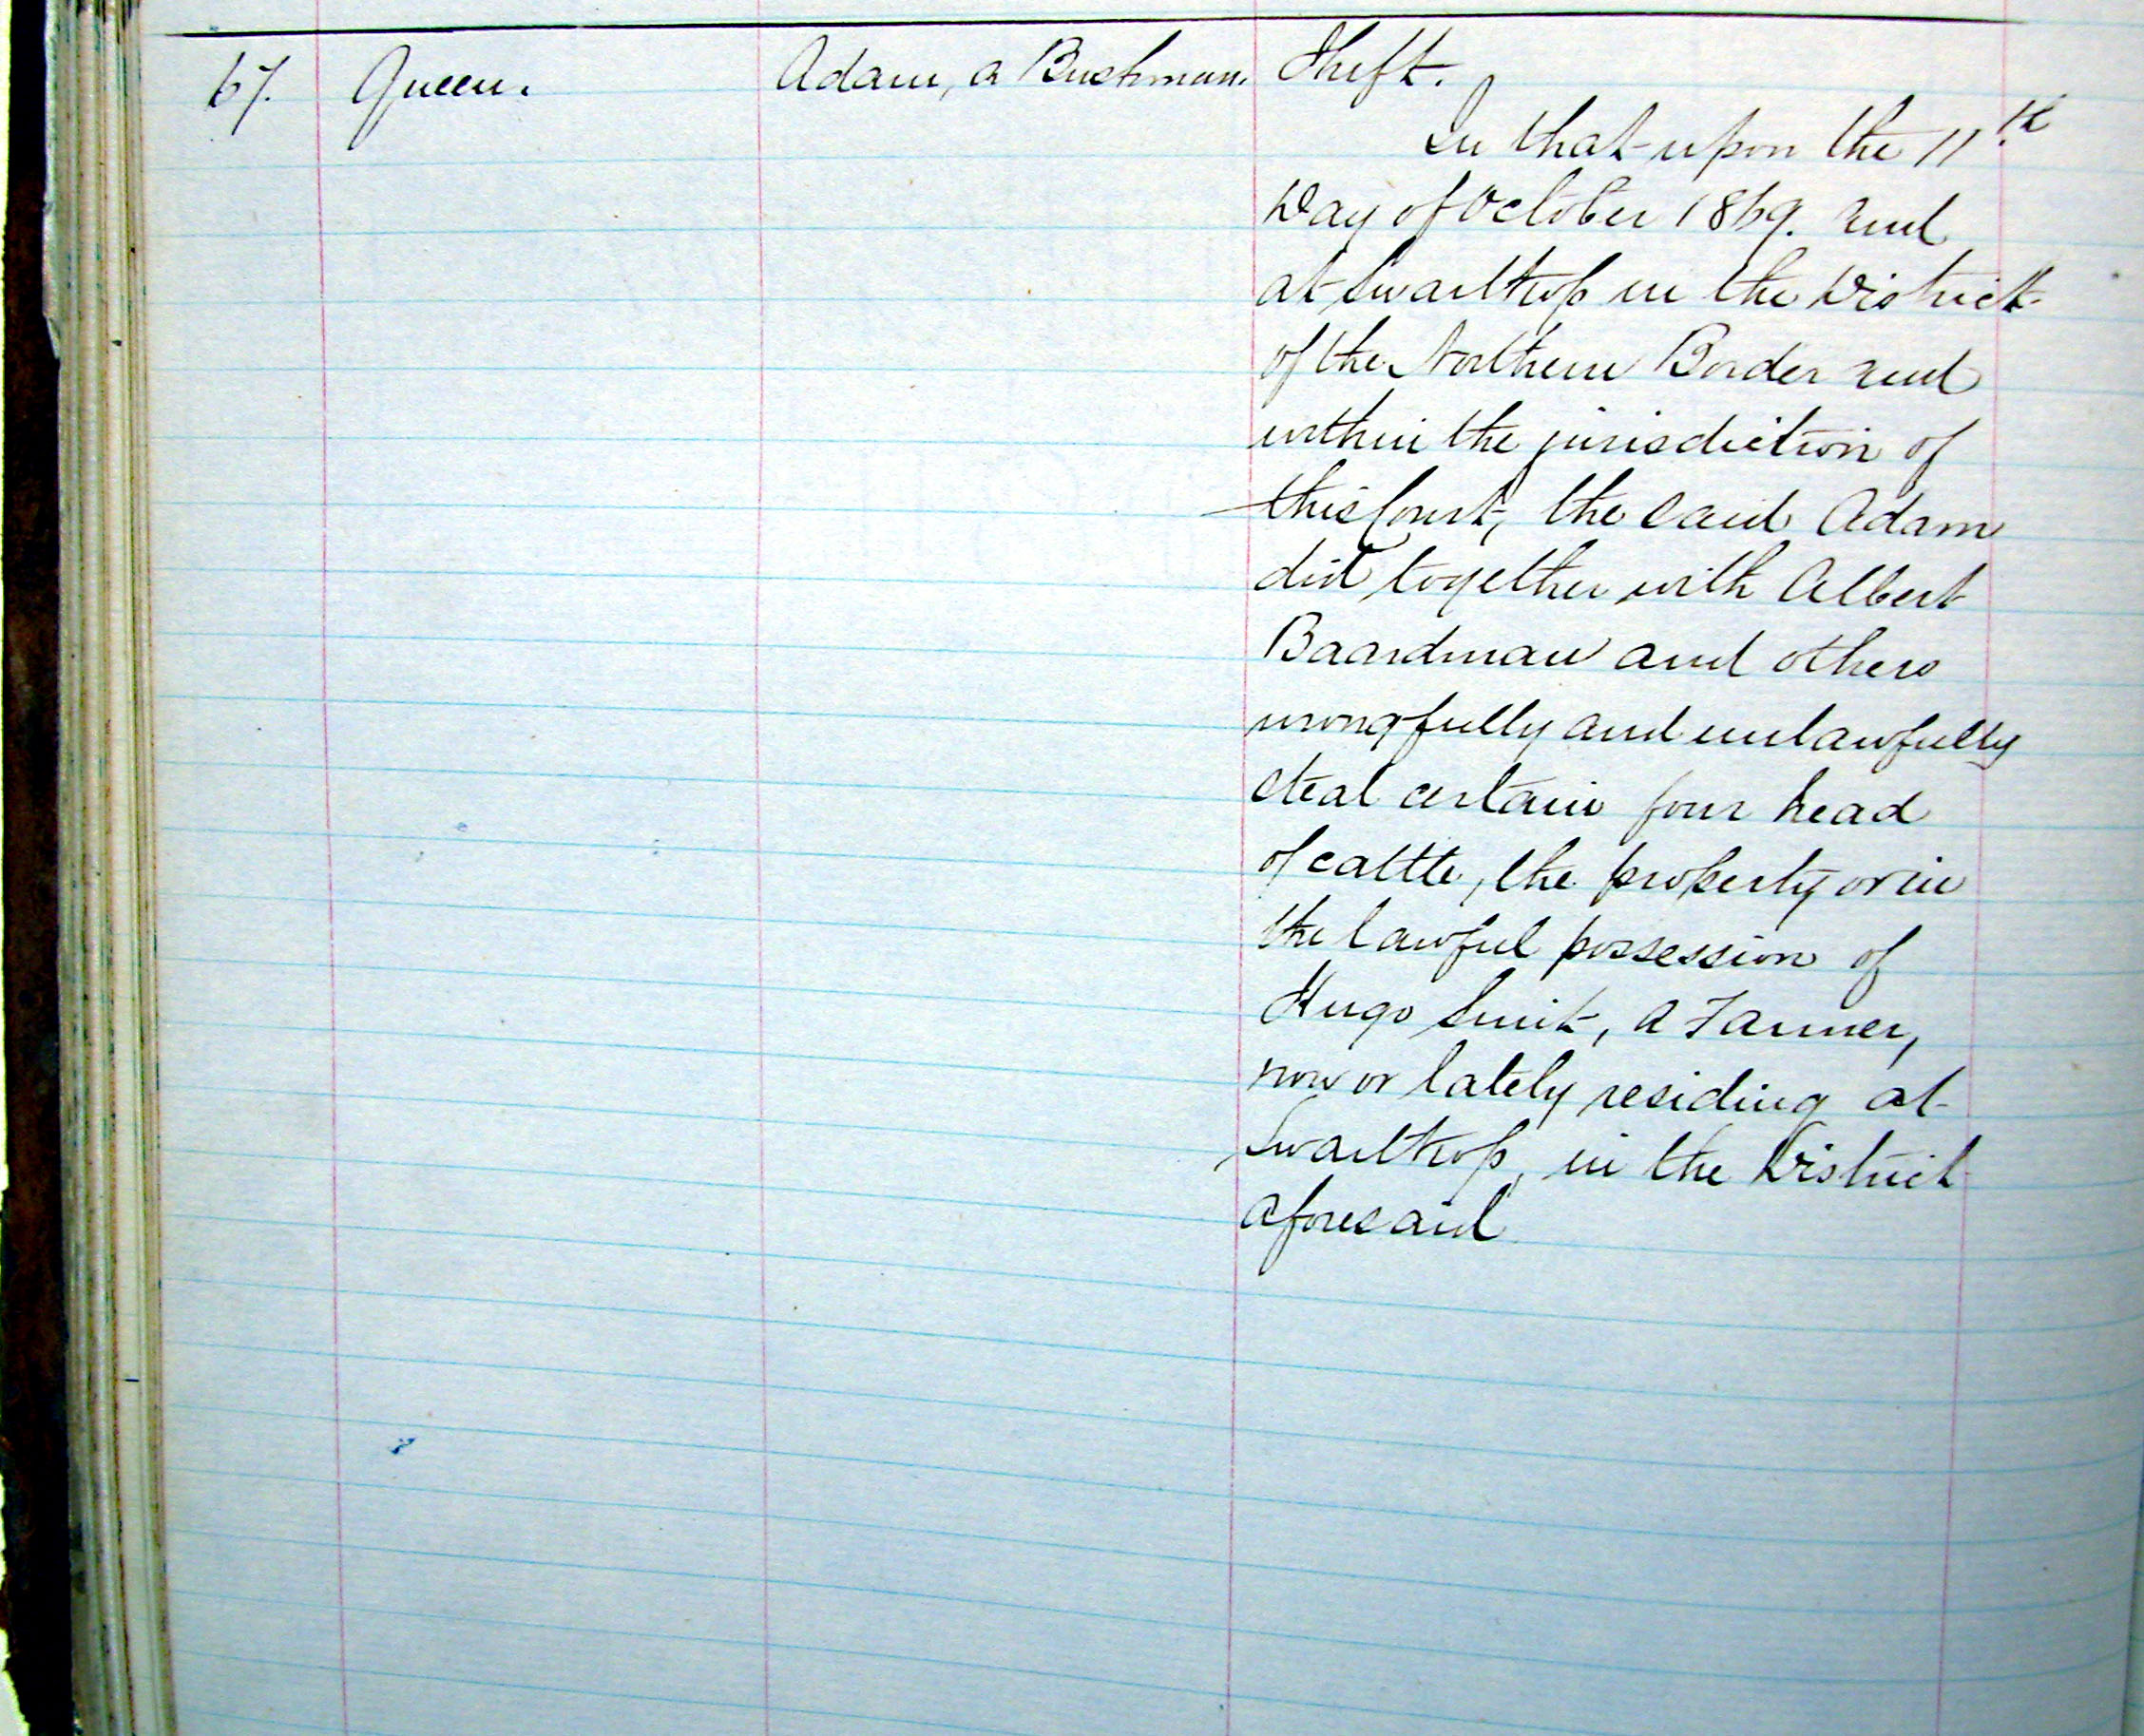 67. Queen. Adam, a Bushman. Theft.
In that upon the 11th
Day of October 1869. and
at Swarttrop in the District
of the Northern Border and
within the jurisdiction of
this Court, the said Adam
did together with Albert
Baardman and others
wrongfully and unlawfully
steal certain four head
of cattle, the property or in
the lawful possession of
Hugo Smit, a Farmer,
now or lately residing at
Swarttrop, in the District
aforesaid